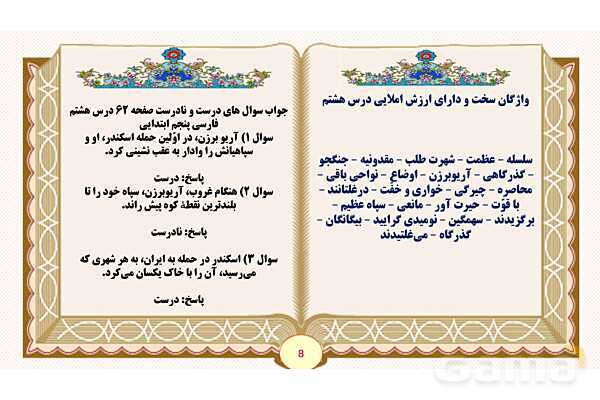 واژگان سخت و دارای ارزش املایی درس هشتم
سلسله - عظمت - شهرت طلب - مقدونیه - جنگجو
- گذرگاهی - آریوبرزن - اوضاع - نواحی باقی -
محاصره - چیرگی - خواری و خفّت - درغلتانند -
با قوّت - حیرت آور - مانعی - سپاه عظیم -
برگزیدند - سهمگین - نومیدی گرایید - بیگانگان -
گذرگاه - می‌غلتیدند
جواب سوال های درست و نادرست صفحه ۶۲ درس هشتم
فارسی پنجم ابتدایی
سوال ۱) آریو برزن، در اوّلین حمله اسکندر، او و
سپاهیانش را وادار به عقب نشینی کرد.
پاسخ: درست
سوال ۲) هنگام غروب، آریوبرزن، سپاه خود را تا
بلندترین نقطهٔ کوه پیش راند.
پاسخ: نادرست
سوال ۳) اسکندر در حمله به ایران، به هر شهری که
می‌رسید، آن را با خاک یکسان می‌کرد.
پاسخ: درست
8
Gama